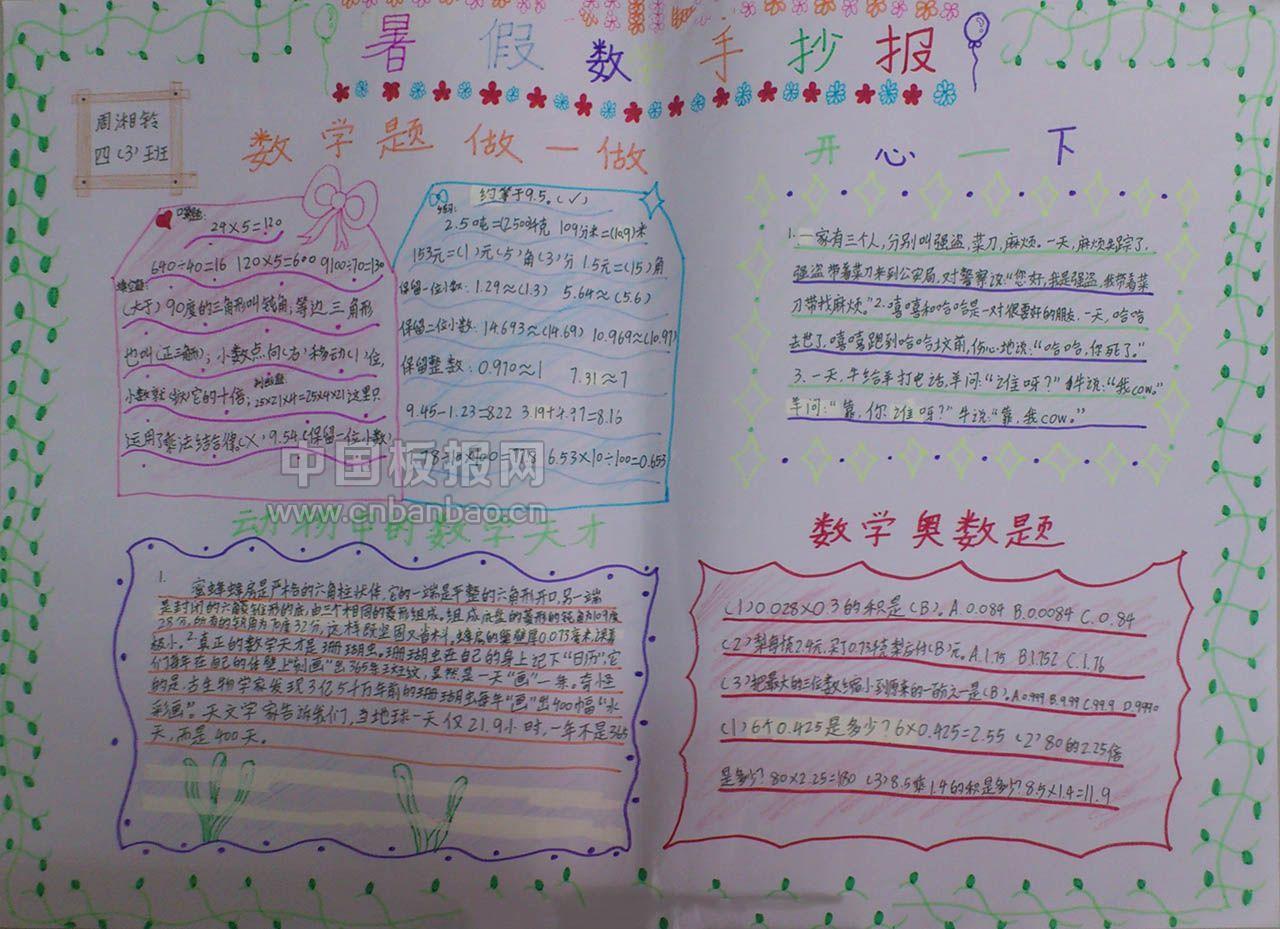 暑假数学手抄报
周湘铃
四（3）班
数学题做一做
口算题：
24×5=120
640÷40=16 120×5=600 9100÷70=130
填空题：
（大于）90度的三角形叫钝角；等边三角形
也叫（正三角形）；小数点向（右）移动（1）位，
小数就扩大它的十倍；判断题：25×21×4=25×4×21这里只
运用了乘法结合律。（×）9.54（保留一位小数）
约等于9.5。（√）
2.5吨=（2500）千克 109分米=（10.9）米
153元=（1）元（5）角（3）分 1.5元=（15）角
保留一位小数：1.29≈（1.3） 5.64≈（5.6）
保留二位小数：14.693≈（14.69） 10.969≈（10.97）
保留整数：0.970≈1 7.31≈7
9.45-1.23=8.22 3.19+4.97=8.16
78÷10×100=778 6.53×10÷100=0.653
开心一下
1.一家有三个人，分别叫强盗，菜刀，麻烦。一天，麻烦丢踪了，
强盗带着菜刀来到公安局，对警察说：“您好，我是强盗，我带着菜
刀带找麻烦。”2.嘻嘻和哈哈是一对很要好的朋友，一天，哈哈
去世了，嘻嘻跑到哈哈坟前，伤心地说：“哈哈，你死了。”
3.一天，牛给羊打电话，羊问：“谁呀？”牛说：“我cow。”
羊问：“靠，你谁呀？”牛说：“靠，我cow。”
中国板报网
www.cnbanbao.cn
动物中的数学天才
1.
蜜蜂蜂房是严格的六角柱状体，它的一端是平整的六角形开口，另一端
是封闭的六角菱锥形的底，由三个相同的菱形组成。组成底盘的菱形的钝角为109度
28分，所有的锐角为70度32分，这样既坚固又省料。蜂房的巢壁厚0.073毫米，误差
极小。2.真正的数学天才是珊瑚虫。珊瑚虫在自己的身上记下“日历”，它
们每年在自己的体壁上“刻画”出365条斑纹，显然是一天“画”一年。奇怪
的是，古生物学家发现3亿5千万年前的珊瑚虫每年“画”出400幅“水
彩画”。天文学家告诉我们，当地球一天仅21.9小时，一年不是365
天，而是400天。
数学奥数题
（1）0.028×0.3的积是（B）。A.0.084 B.0.0084 C.0.84
（2）梨每枝2.4元，买了0.73枝梨应付（B）元。A.1.75 B1.752 C.1.76
（3）把最大的三位数缩小到原来的一百分之一是（B）。A.0.999 B.9.99 C.99.9 D.9990
（1）6个0.425是多少？6×0.425=2.55 （2）80的2.25倍
是多少？80×2.25=180 （3）8.5乘1.4的积是多少？8.5×1.4=11.9